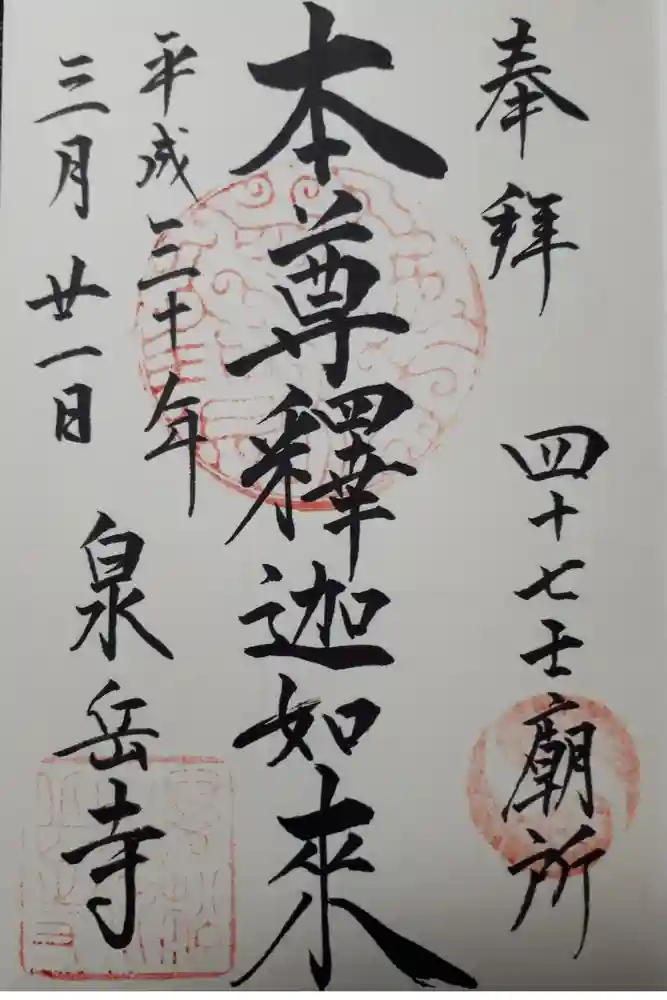 奉拜
四十七士廟所
本尊釋迦如來
平成三十年
三月廿一日
泉岳寺